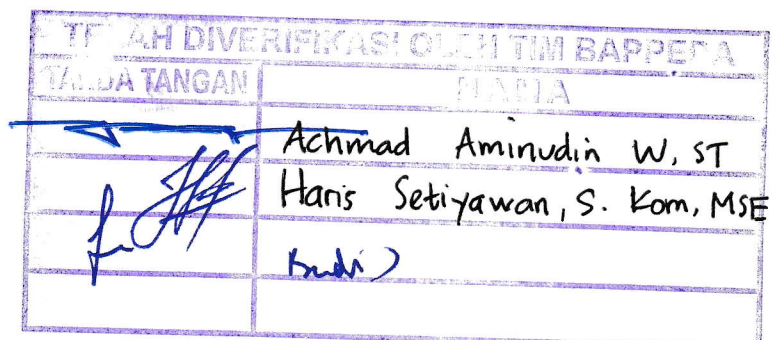 TELAH DIVERIFIKASI OLEH TIM BAPPEDA
TANDA TANGAN NAMA
Achmad Aminudin W, ST
Haris Setiyawan, S. Kom, MSE
Budi